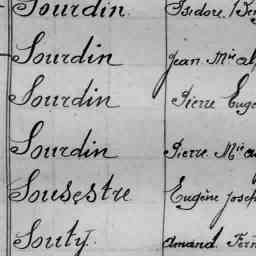 Sourdin Isidore
Sourdin Jean Mie
Sourdin Pierre Eugè
Sourdin Pierre Mie
Sousestre Eugène Josep
Souty Amand Fern